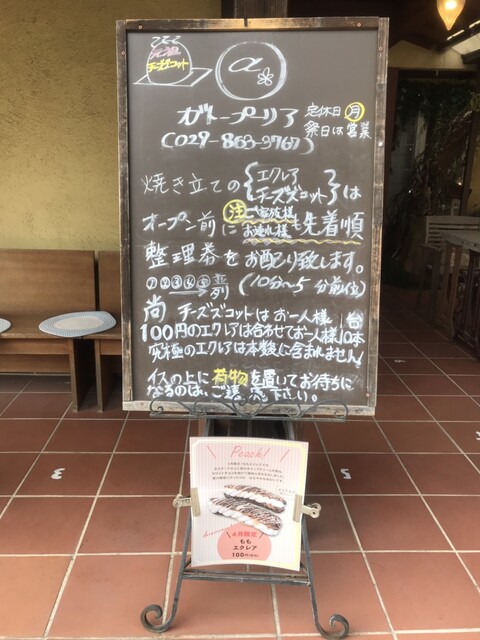 チーズズコット
α
ガトープーリア
定休日(月)
祭日は営業
(029-863-3767)
焼き立ての{エクレア
チーズズコット}は
オープン前に(注)ご家族様
お連れ様も先着順
整理券をお配り致します。
①②③④⑤ → 列 (10分〜5分前位)
尚 チーズズコットはお一人様 1台
100円のエクレアは合わせてお一人様10本
究極のエクレアは本数に含まれません!
イスの上に荷物を置いてお待ちに
なるのは、ご遠慮下さい。
Peach!
4月限定
もも
エクレア
100円(税込)
3
2